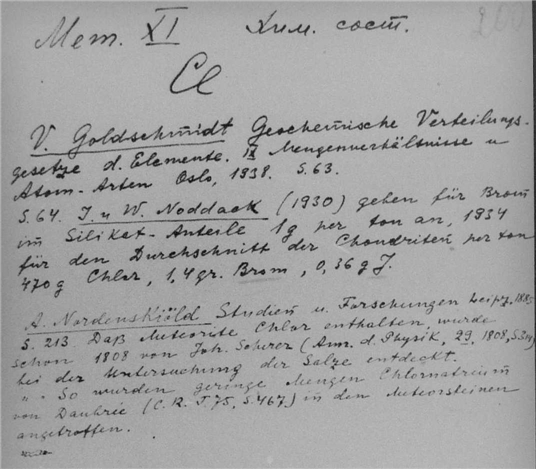 Мет. XI Хим. сост. 200
Cl
V. Goldschmidt Geochemische Verteilungs-
gesetze d. Elemente. IX Mengenverhältnisse u
Atom-Arten Oslo, 1838. S. 63.
S. 64. I. u W. Noddack (1930) gehen für Brom
im Siliket-Anteile 1g per ton an, 1934
für den Durchschnitt der Chondriten per ton
470 g Chlor, 1,4 gr. Brom, 0,36 g J.
A. Nordenskiöld Studien u. Forschungen Leipz, 1885
S. 213. Daß Meteorite Chlor enthalten, wurde
schon 1808 von Joh. Scherer (Ann. d. Physik, 29, 1808, S.
bei der Untersuchung der Salze entdeckt.
„ „ So wurden geringe Mengen Chlornatrium
von Daubrée (C. R. T 75, S. 467) in den Meteorsteinen
angetroffen.